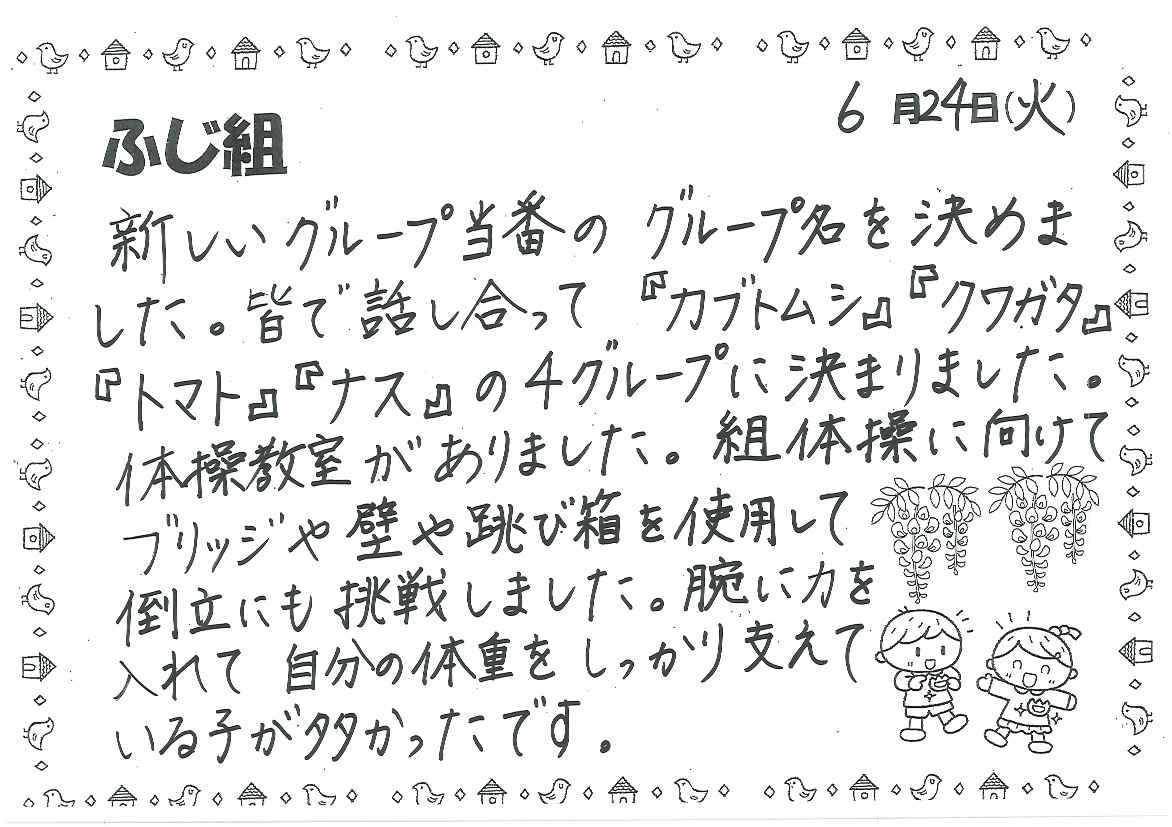 6月24日(火)
ふじ組
新しいグループ当番の グループ名を決めま
した。皆で話し合って 『カブトムシ』『クワガタ』
『トマト』『ナス』の4グループに決まりました。
体操教室がありました。組体操に向けて
ブリッジや壁や跳び箱を使用して
倒立にも挑戦しました。腕に力を
入れて 自分の体重を しっかり支えて
いる子が多かったです。